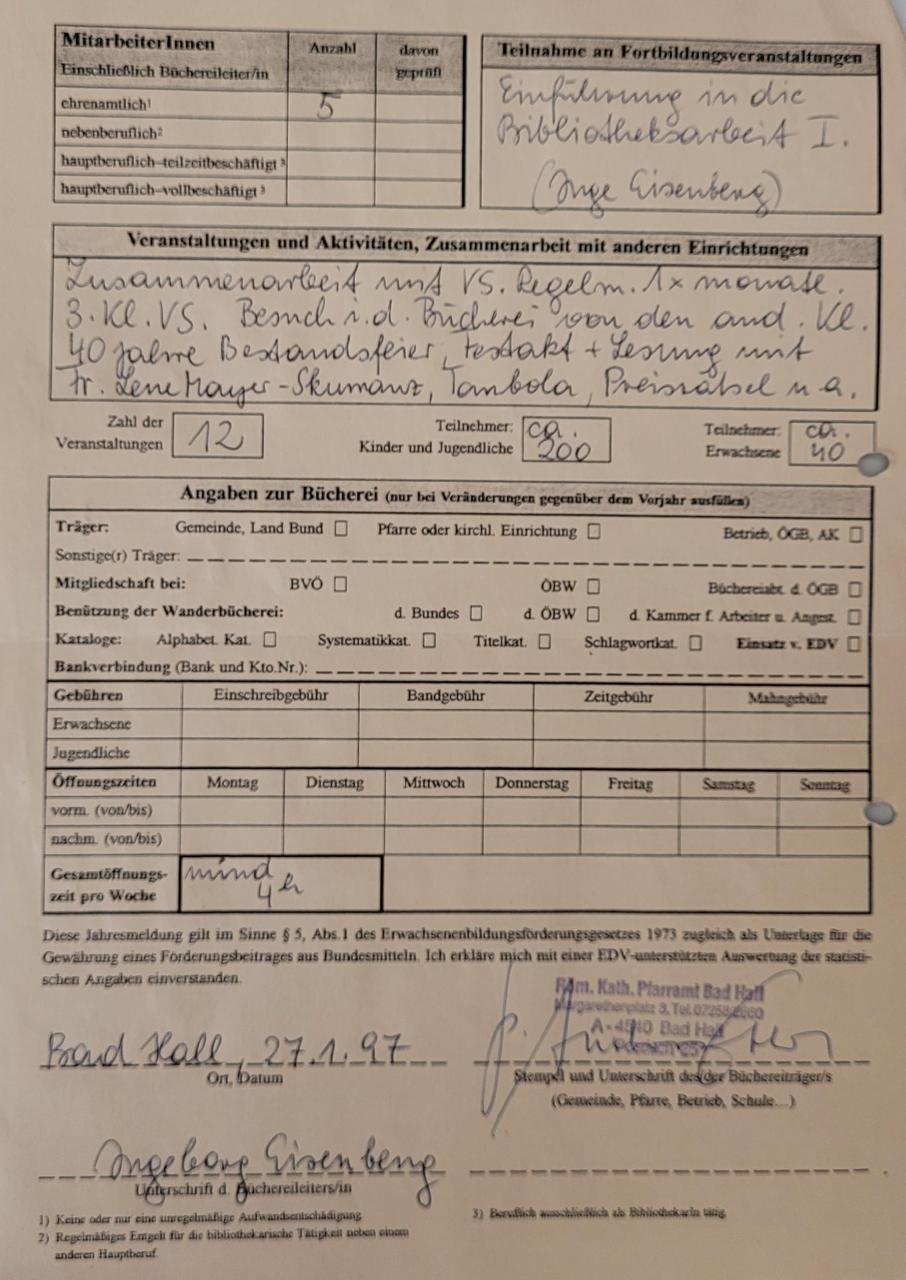 MitarbeiterInnen Anzahl davon
Einschließlich Büchereileiter/in geprüft
ehrenamtlich¹ 5
nebenberuflich²
hauptberuflich–teilzeitbeschäftigt ³
hauptberuflich–vollbeschäftigt ³
Teilnahme an Fortbildungsveranstaltungen
Einführung in die
Bibliotheksarbeit I.
(Inge Eisenberg)
Veranstaltungen und Aktivitäten, Zusammenarbeit mit anderen Einrichtungen
Zusammenarbeit mit VS. Regelm. 1x monatl.
3. Kl. VS. Besuch i. d. Bücherei von den and. Kl.
40 Jahre Bestandsfeier, Festakt + Lesung mit
Fr. Lene Mayer-Skumanz, Tombola, Preisrätsel u a.
Zahl der Veranstaltungen 12
Teilnehmer: Kinder und Jugendliche ca. 200
Teilnehmer: Erwachsene ca. 40
Angaben zur Bücherei (nur bei Veränderungen gegenüber dem Vorjahr ausfüllen)
Träger: Gemeinde, Land Bund Pfarre oder kirchl. Einrichtung Betrieb, ÖGB, AK
Sonstige(r) Träger:
Mitgliedschaft bei: BVÖ ÖBW Büchereiabt. d. ÖGB
Benützung der Wanderbücherei: d. Bundes d. ÖBW d. Kammer f. Arbeiter u. Angest.
Kataloge: Alphabet. Kat. Systematikkat. Titelkat. Schlagwortkat. Einsatz v. EDV
Bankverbindung (Bank und Kto.Nr.):
Gebühren Einschreibgebühr Bandgebühr Zeitgebühr Mahngebühr
Erwachsene
Jugendliche
Öffnungszeiten Montag Dienstag Mittwoch Donnerstag Freitag Samstag Sonntag
vorm. (von/bis)
nachm. (von/bis)
Gesamtöffnungs- mind
zeit pro Woche 4h
Diese Jahresmeldung gilt im Sinne § 5, Abs.1 des Erwachsenenbildungsförderungsgesetzes 1973 zugleich als Unterlage für die
Gewährung eines Förderungsbeitrages aus Bundesmitteln. Ich erkläre mich mit einer EDV-unterstützten Auswertung der statisti-
schen Angaben einverstanden.
Röm. Kath. Pfarramt Bad Hall
Margarethenplatz 3, Tel. 07258
A - 4540 Bad Hall
Bad Hall, 27.1.97
Ort, Datum
Stempel und Unterschrift des/der Büchereiträger/s
(Gemeinde, Pfarre, Betrieb, Schule...)
Ingeborg Eisenberg
Unterschrift d. Büchereileiters/in
1) Keine oder nur eine unregelmäßige Aufwandsentschädigung
2) Regelmäßiges Entgelt für die bibliothekarische Tätigkeit neben einem
anderen Hauptberuf.
3) Beruflich ausschließlich als BibliothekarIn tätig.